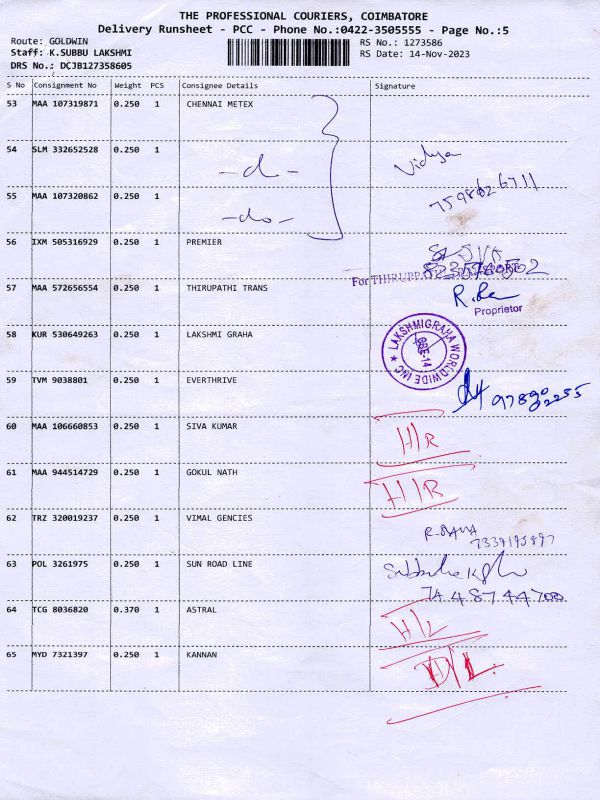 THE PROFESSIONAL COURIERS, COIMBATORE
Delivery Runsheet - PCC - Phone No.:0422-3505555 - Page No.:5
Route: GOLDWIN RS No.: 1273586
Staff: K.SUBBU LAKSHMI RS Date: 14-Nov-2023
DRS No.: DCJB127358605
S No Consignment No Weight PCS Consignee Details Signature
53 MAA 107319871 0.250 1 CHENNAI METEX
54 SLM 332652528 0.250 1 -do- Vidya
55 MAA 107320862 0.250 1 -do- 7598626711
56 IXM 505316929 0.250 1 PREMIER
For THIRUPP
57 MAA 572656554 0.250 1 THIRUPATHI TRANS
Proprietor
58 KUR 530649263 0.250 1 LAKSHMI GRAHA LAKSHMIGRAHA WORLDWIDE INC CBE-14
59 TVM 9038801 0.250 1 EVERTHRIVE
60 MAA 106660853 0.250 1 SIVA KUMAR H/R
61 MAA 944514729 0.250 1 GOKUL NATH H/R
62 TRZ 320019237 0.250 1 VIMAL GENCIES
63 POL 3261975 0.250 1 SUN ROAD LINE
7448744700
64 TCG 8036820 0.370 1 ASTRAL H/L
65 MYD 7321397 0.250 1 KANNAN D/L